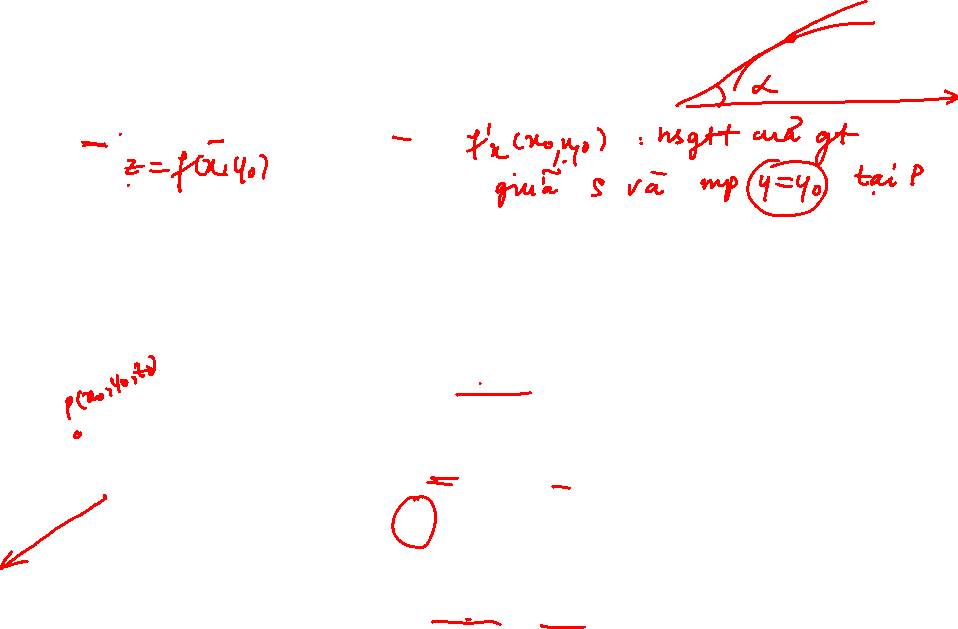 α
z = f(x, y₀)
f'ₓ(x₀, y₀) : hsgtt của gt
giữa S và mp y = y₀ tại P
P(x₀, y₀, z₀)